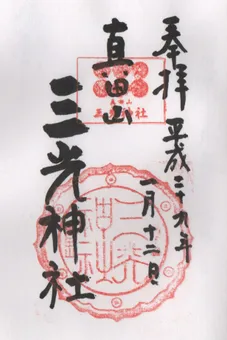 奉拝
平成二十九年
一月十二日
真田山
三光神社
真田山
三光神社